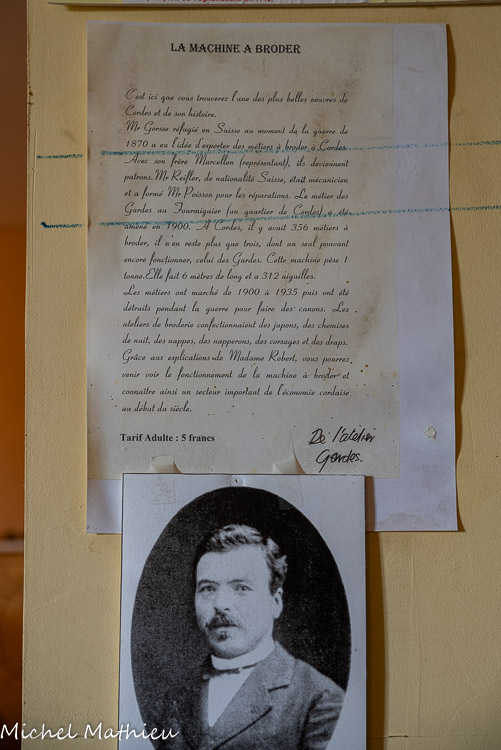 LA MACHINE A BRODER
C'est ici que vous trouverez l'une des plus belles oeuvres de
Cordes et de son histoire.
Mr Gorsse réfugié en Suisse au moment de la guerre de
1870 a eu l'idée d'exporter des métiers à broder à Cordes.
Avec son frère Marcellen (représentant), ils deviennent
patrons.Mr Reifler, de nationalité Suisse, était mécanicien
et a formé Mr Poisson pour les réparations. Le métier des
Gardes au Fourmiguier (un quartier de Cordes) a été
amené en 1900. A Cordes, il y avait 356 métiers à
broder, il n'en reste plus que trois, dont un seul pouvant
encore fonctionner, celui des Gardes. Cette machine pèse 1
tonne.Elle fait 6 mètres de long et a 312 aiguilles.
Les métiers ont marché de 1900 à 1935 puis ont été
détruits pendant la guerre pour faire des canons. Les
ateliers de broderie confectionnaient des jupons, des chemises
de nuit, des nappes, des napperons, des corsages et des draps.
Grâce aux explications de Madame Robert, vous pourrez
venir voir le fonctionnement de la machine à broder et
connaître ainsi un secteur important de l'économie cordaise
au début du siècle.
Tarif Adulte : 5 francs
De l'atelier
Gardes.
Michel Mathieu